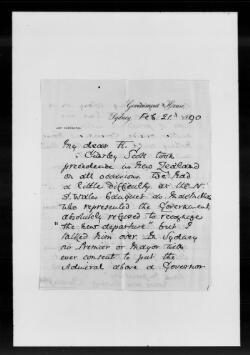 Government House,
Sydney Feb. 21st 1890
My dear K.
Charley Scott took
precedence in New Zealand
on all occasions. We had
a little difficulty at the N.
S. Wales banquet as
who represented the Government
absolutely refused to recognise
"the new departure" but I
talked him over. In Sydney
no Premier or Mayor will
ever consent to put the
Admiral above a Governor